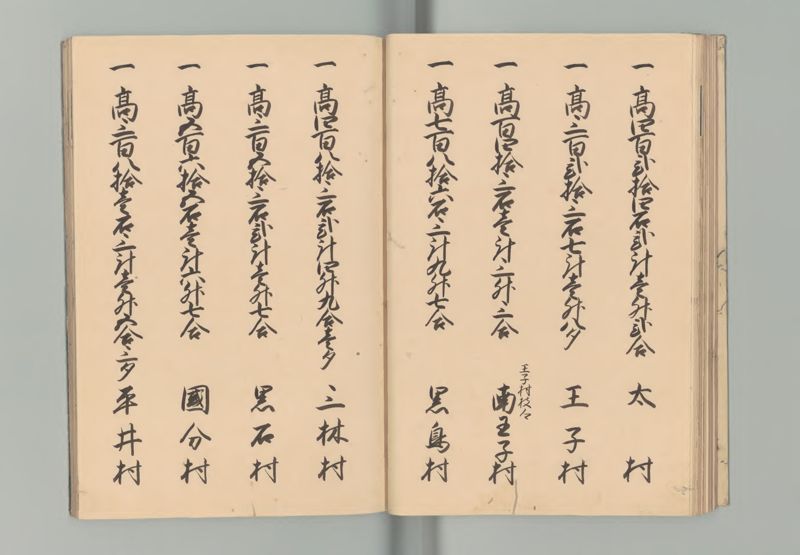 一髙四百弐拾四石弐斗壱升弐合 太村
一髙三百弐拾三石七斗壱升八夕 王子村
一髙百四拾三石壱斗三升三合 南王子村
王子村枝
一髙七百八拾六石三斗九升七合 黒鳥村
一髙四百八拾三石弐斗四升九合壱夕 三林村
一髙三百五拾三石弐斗壱升七合 黒石村
一髙五百六拾五石壱斗六升七合 國分村
一髙三百八拾壱石三斗壱升五合三夕 平井村